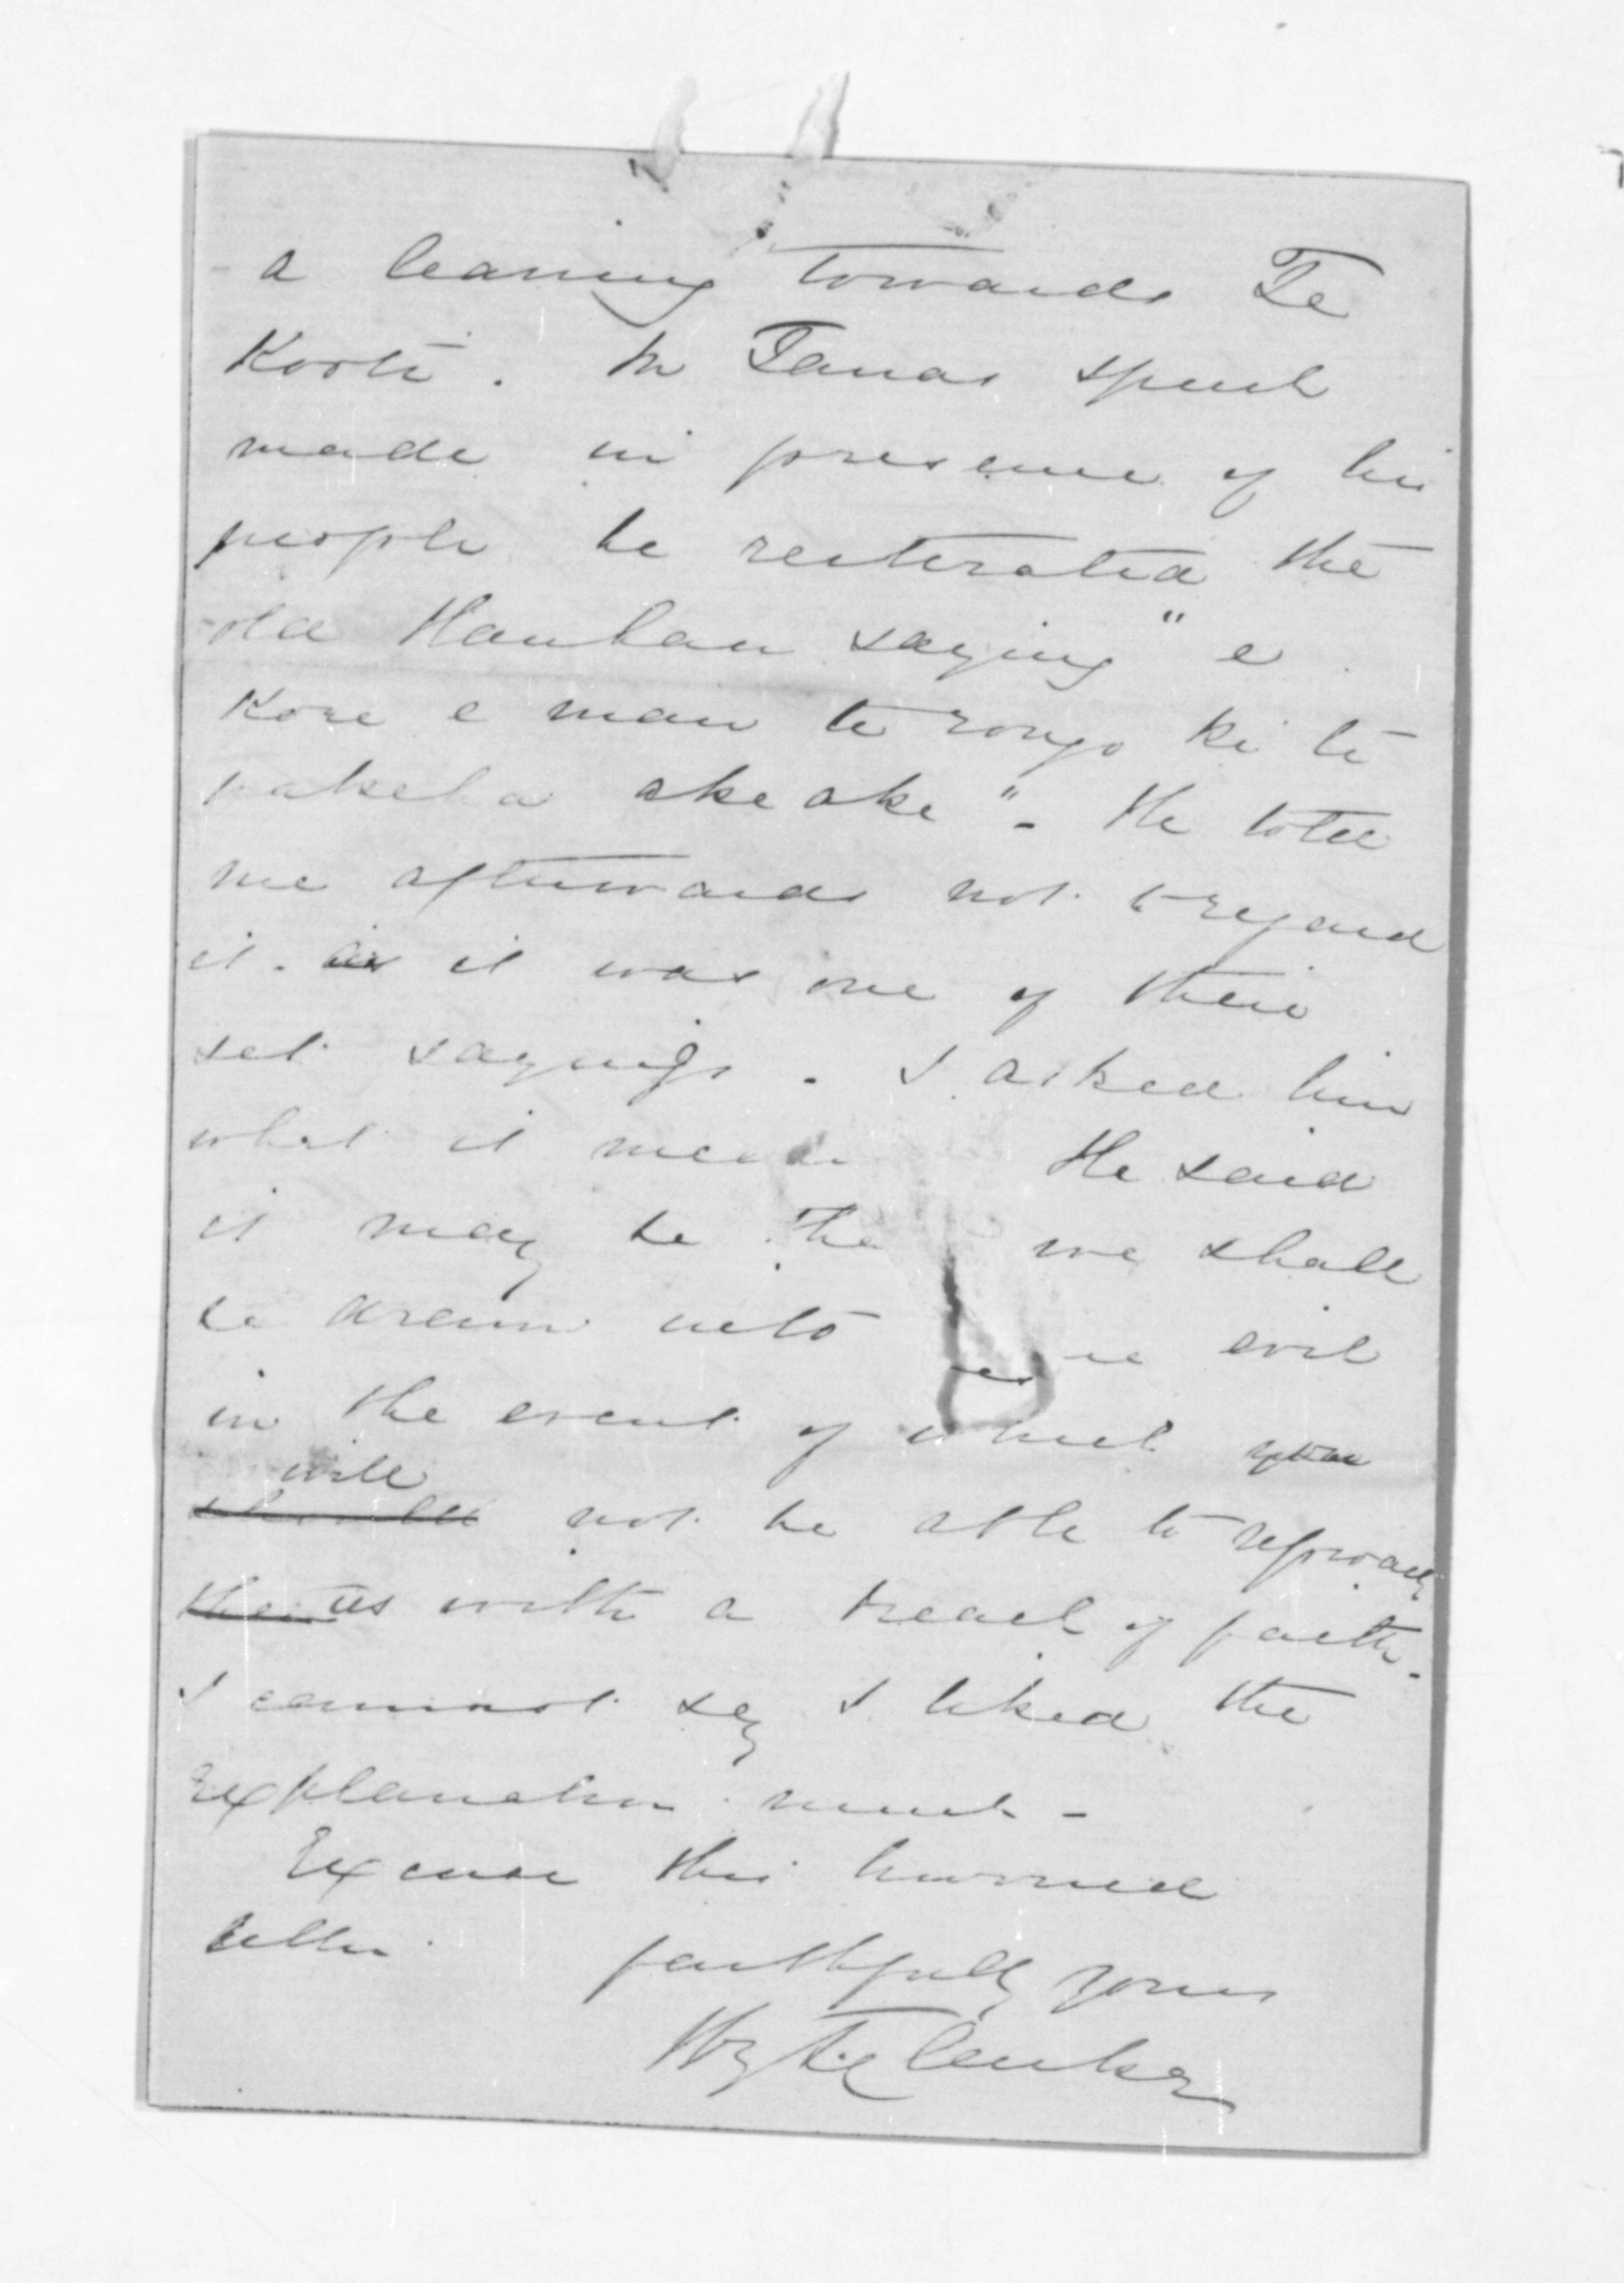 a leaning towards Te
Kooti. In Tanas speech
made in presence of his
people he reiterated the
old Hauhau saying "e
Kore e mau te rongo ki te
pakeha ake ake" - He told
me afterwards not to regard
it. as it was one of their
set sayings. I asked him
what it He said
it may be we shall
be drawn into evil
in the event of which you
will
should not be able to reproach
us with a breach of faith -
I cannot say I liked the
Explanation much -
Excuse this hurried
letter. faithfully yours